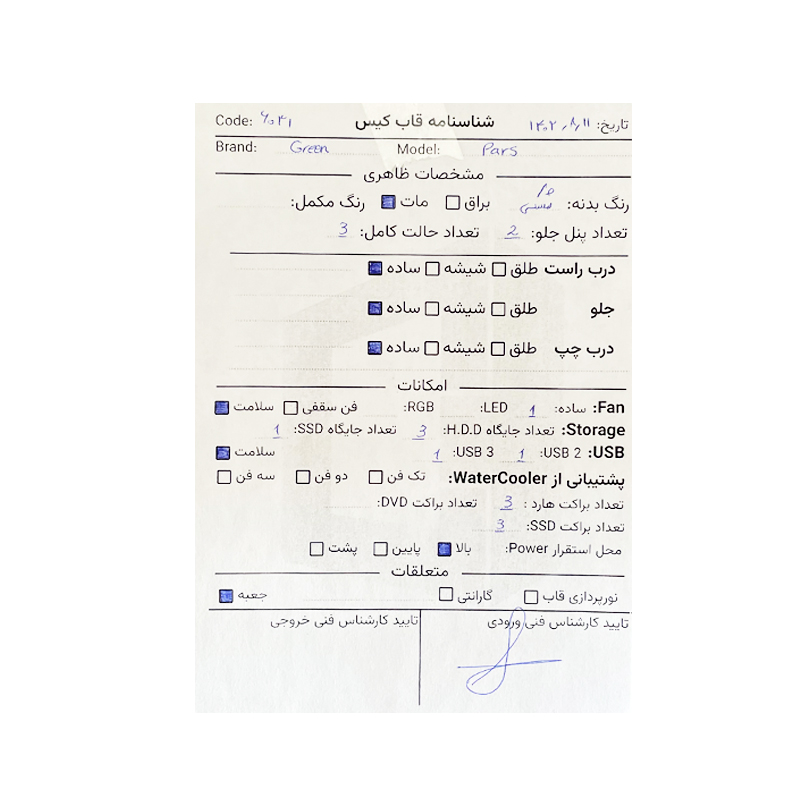 تاریخ: ۱۴۰۲/۸/۱۱ شناسنامه قاب کیس Code: ۹۰۴۱
Brand: Green Model: Pars
مشخصات ظاهری
رنگ بدنه: براق مات رنگ مکمل:
تعداد پنل جلو: 2 تعداد حالت کامل: 3
درب راست طلق شیشه ساده
جلو طلق شیشه ساده
درب چپ طلق شیشه ساده
امکانات
Fan: ساده: 1 LED: RGB: فن سقفی سلامت
Storage: تعداد جایگاه H.D.D: 3 تعداد جایگاه SSD: 1
USB: USB 2: 1 USB 3: 1 سلامت
پشتیبانی از WaterCooler: تک فن دو فن سه فن
تعداد براکت هارد : 3 تعداد براکت DVD:
تعداد براکت SSD: 3
محل استقرار Power: بالا پایین پشت
متعلقات
نورپردازی قاب گارانتی جعبه
تایید کارشناس فنی ورودی تایید کارشناس فنی خروجی